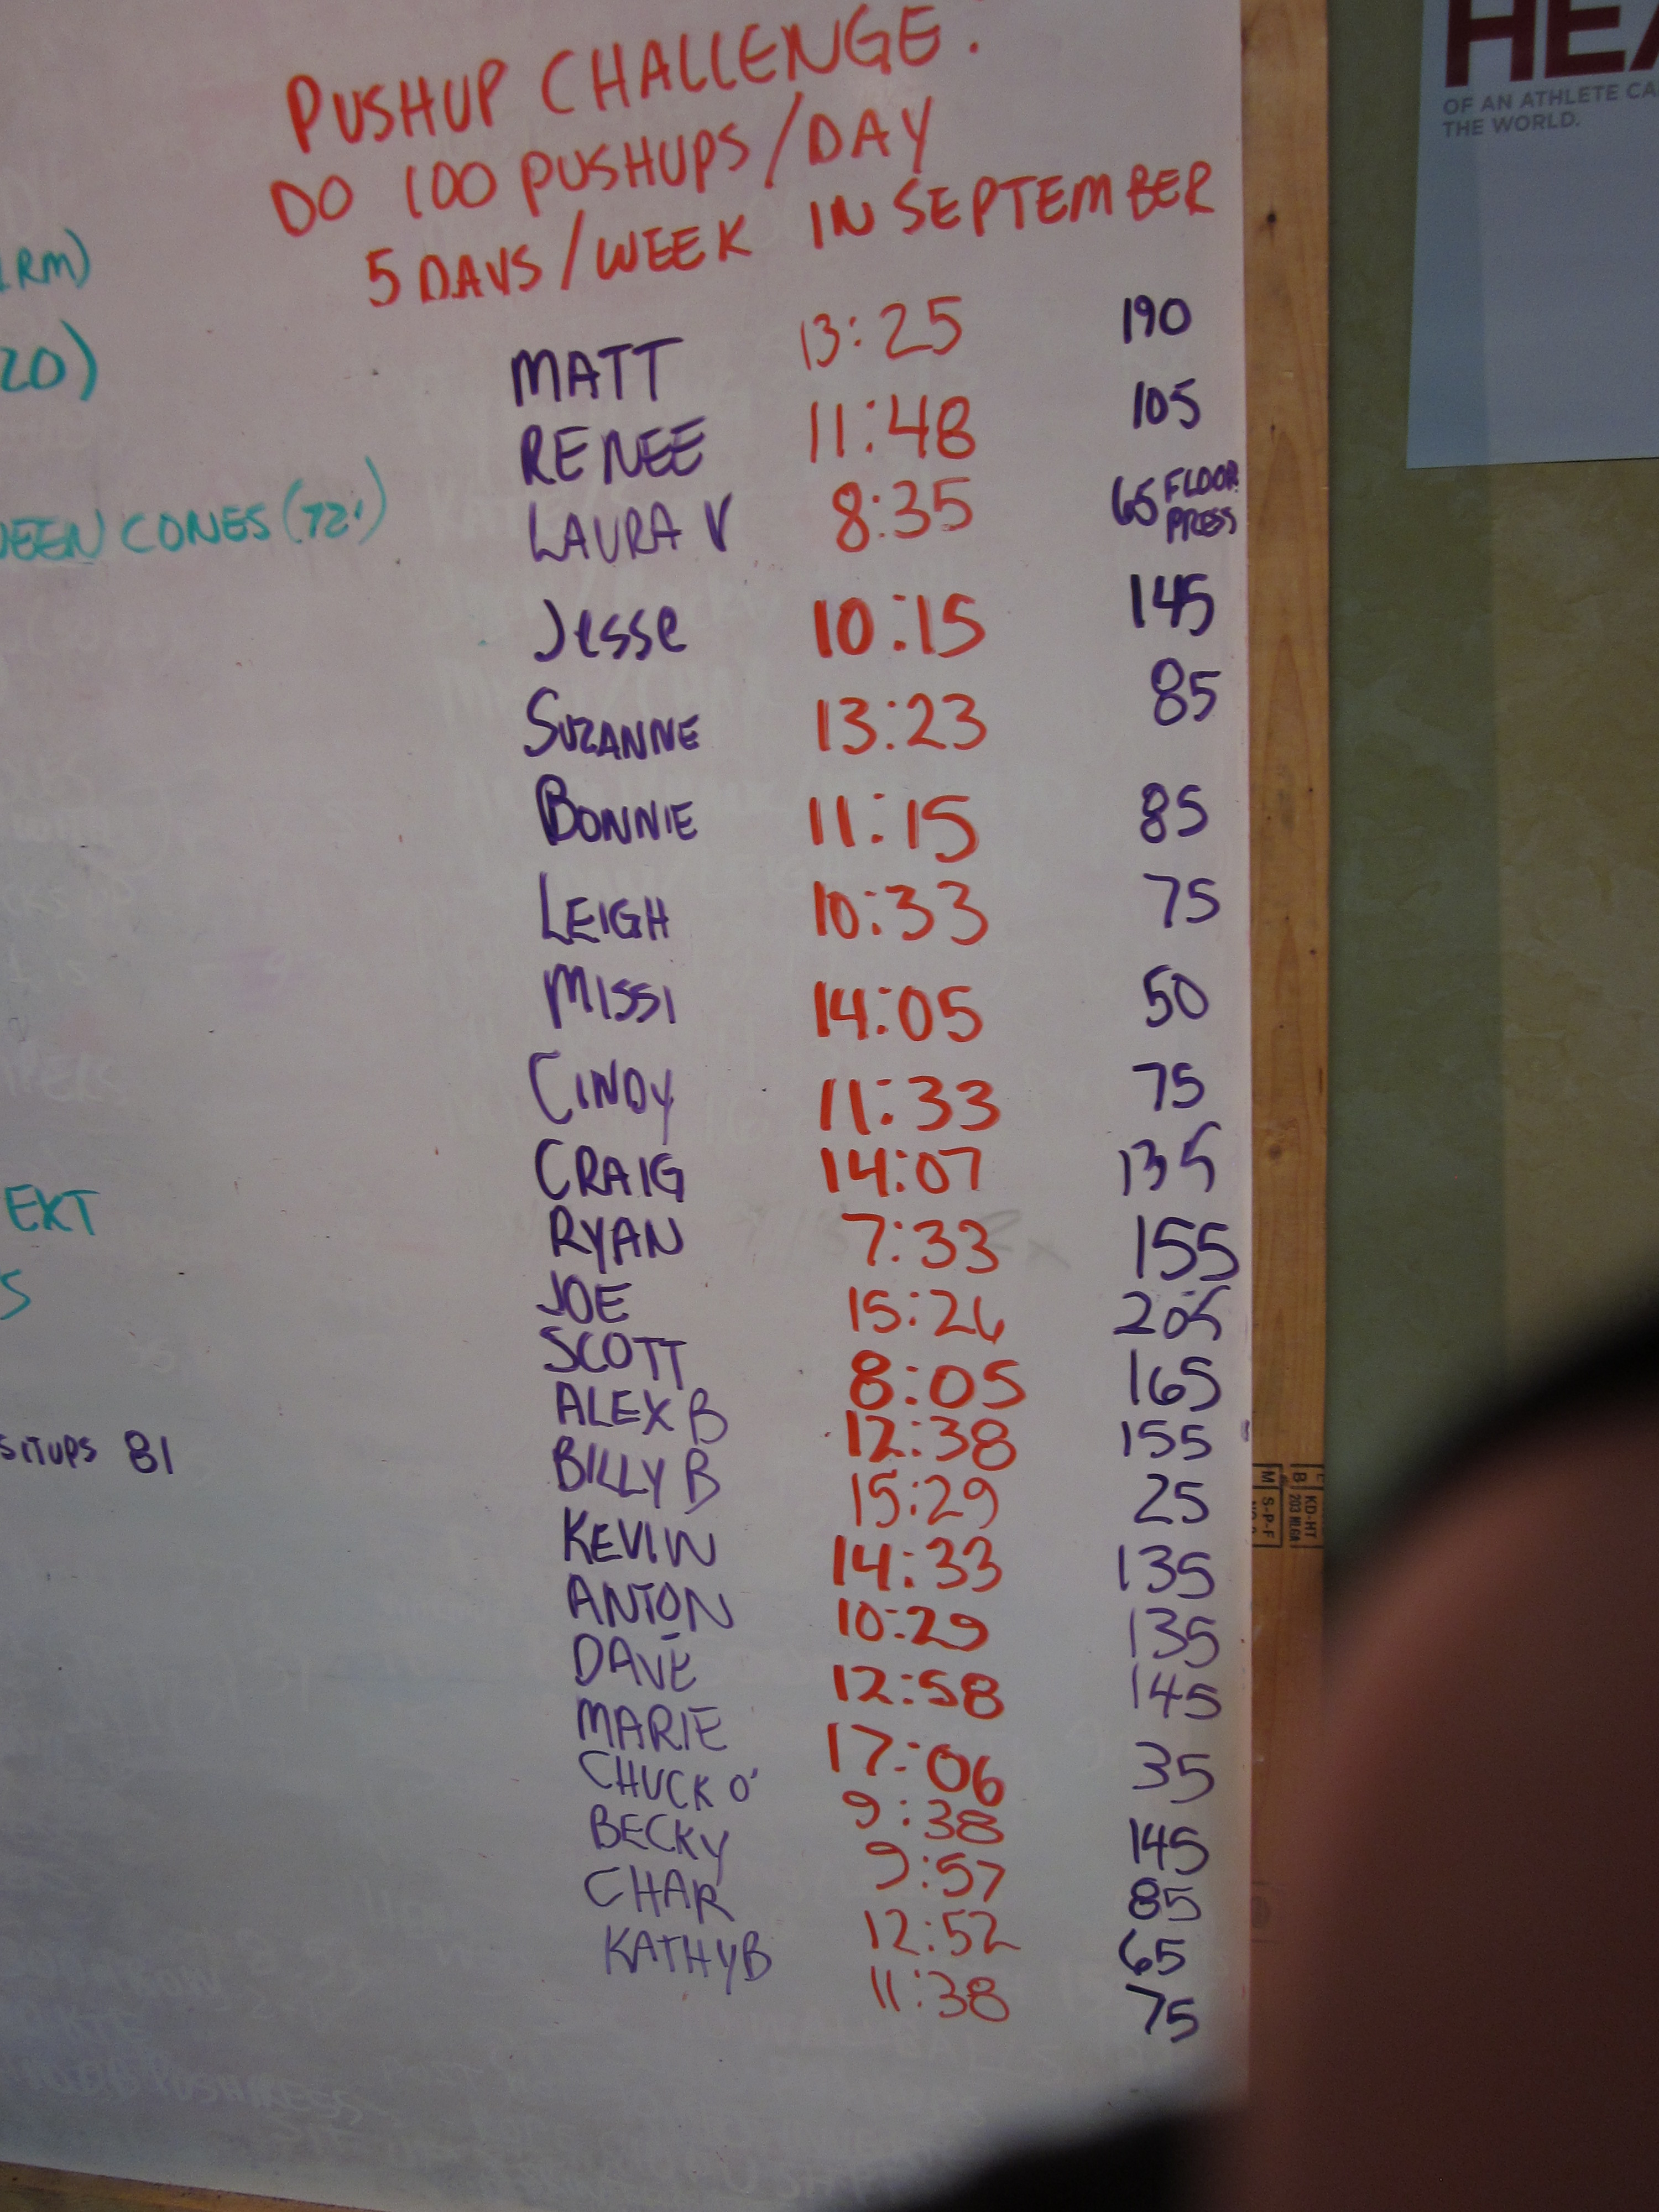 PUSHUP CHALLENGE:
DO 100 PUSHUPS/DAY
5 DAYS/WEEK IN SEPTEMBER
MATT 13:25 190
RENEE 11:48 105
LAURA V 8:35 65 FLOOR PRESS
Jesse 10:15 145
SUZANNE 13:23 85
BONNIE 11:15 85
LEIGH 10:33 75
MISSI 14:05 50
CINDY 11:33 75
CRAIG 14:07 135
RYAN 7:33 155
JOE 15:26 205
SCOTT 8:05 165
ALEX B 12:38 155
BILLY B 15:29 25
KEVIN 14:33 135
ANTON 10:29 135
DAVE 12:58 145
MARIE 17:06 35
CHUCK O' 9:38 145
BECKY 9:57 85
CHAR 12:52 65
KATHY B 11:38 75
RM)
20)
EEN CONES (72')
EXT
S
SITUPS 81
HEA
OF AN ATHLETE CA
THE WORLD.
KD-HT
S-P-F